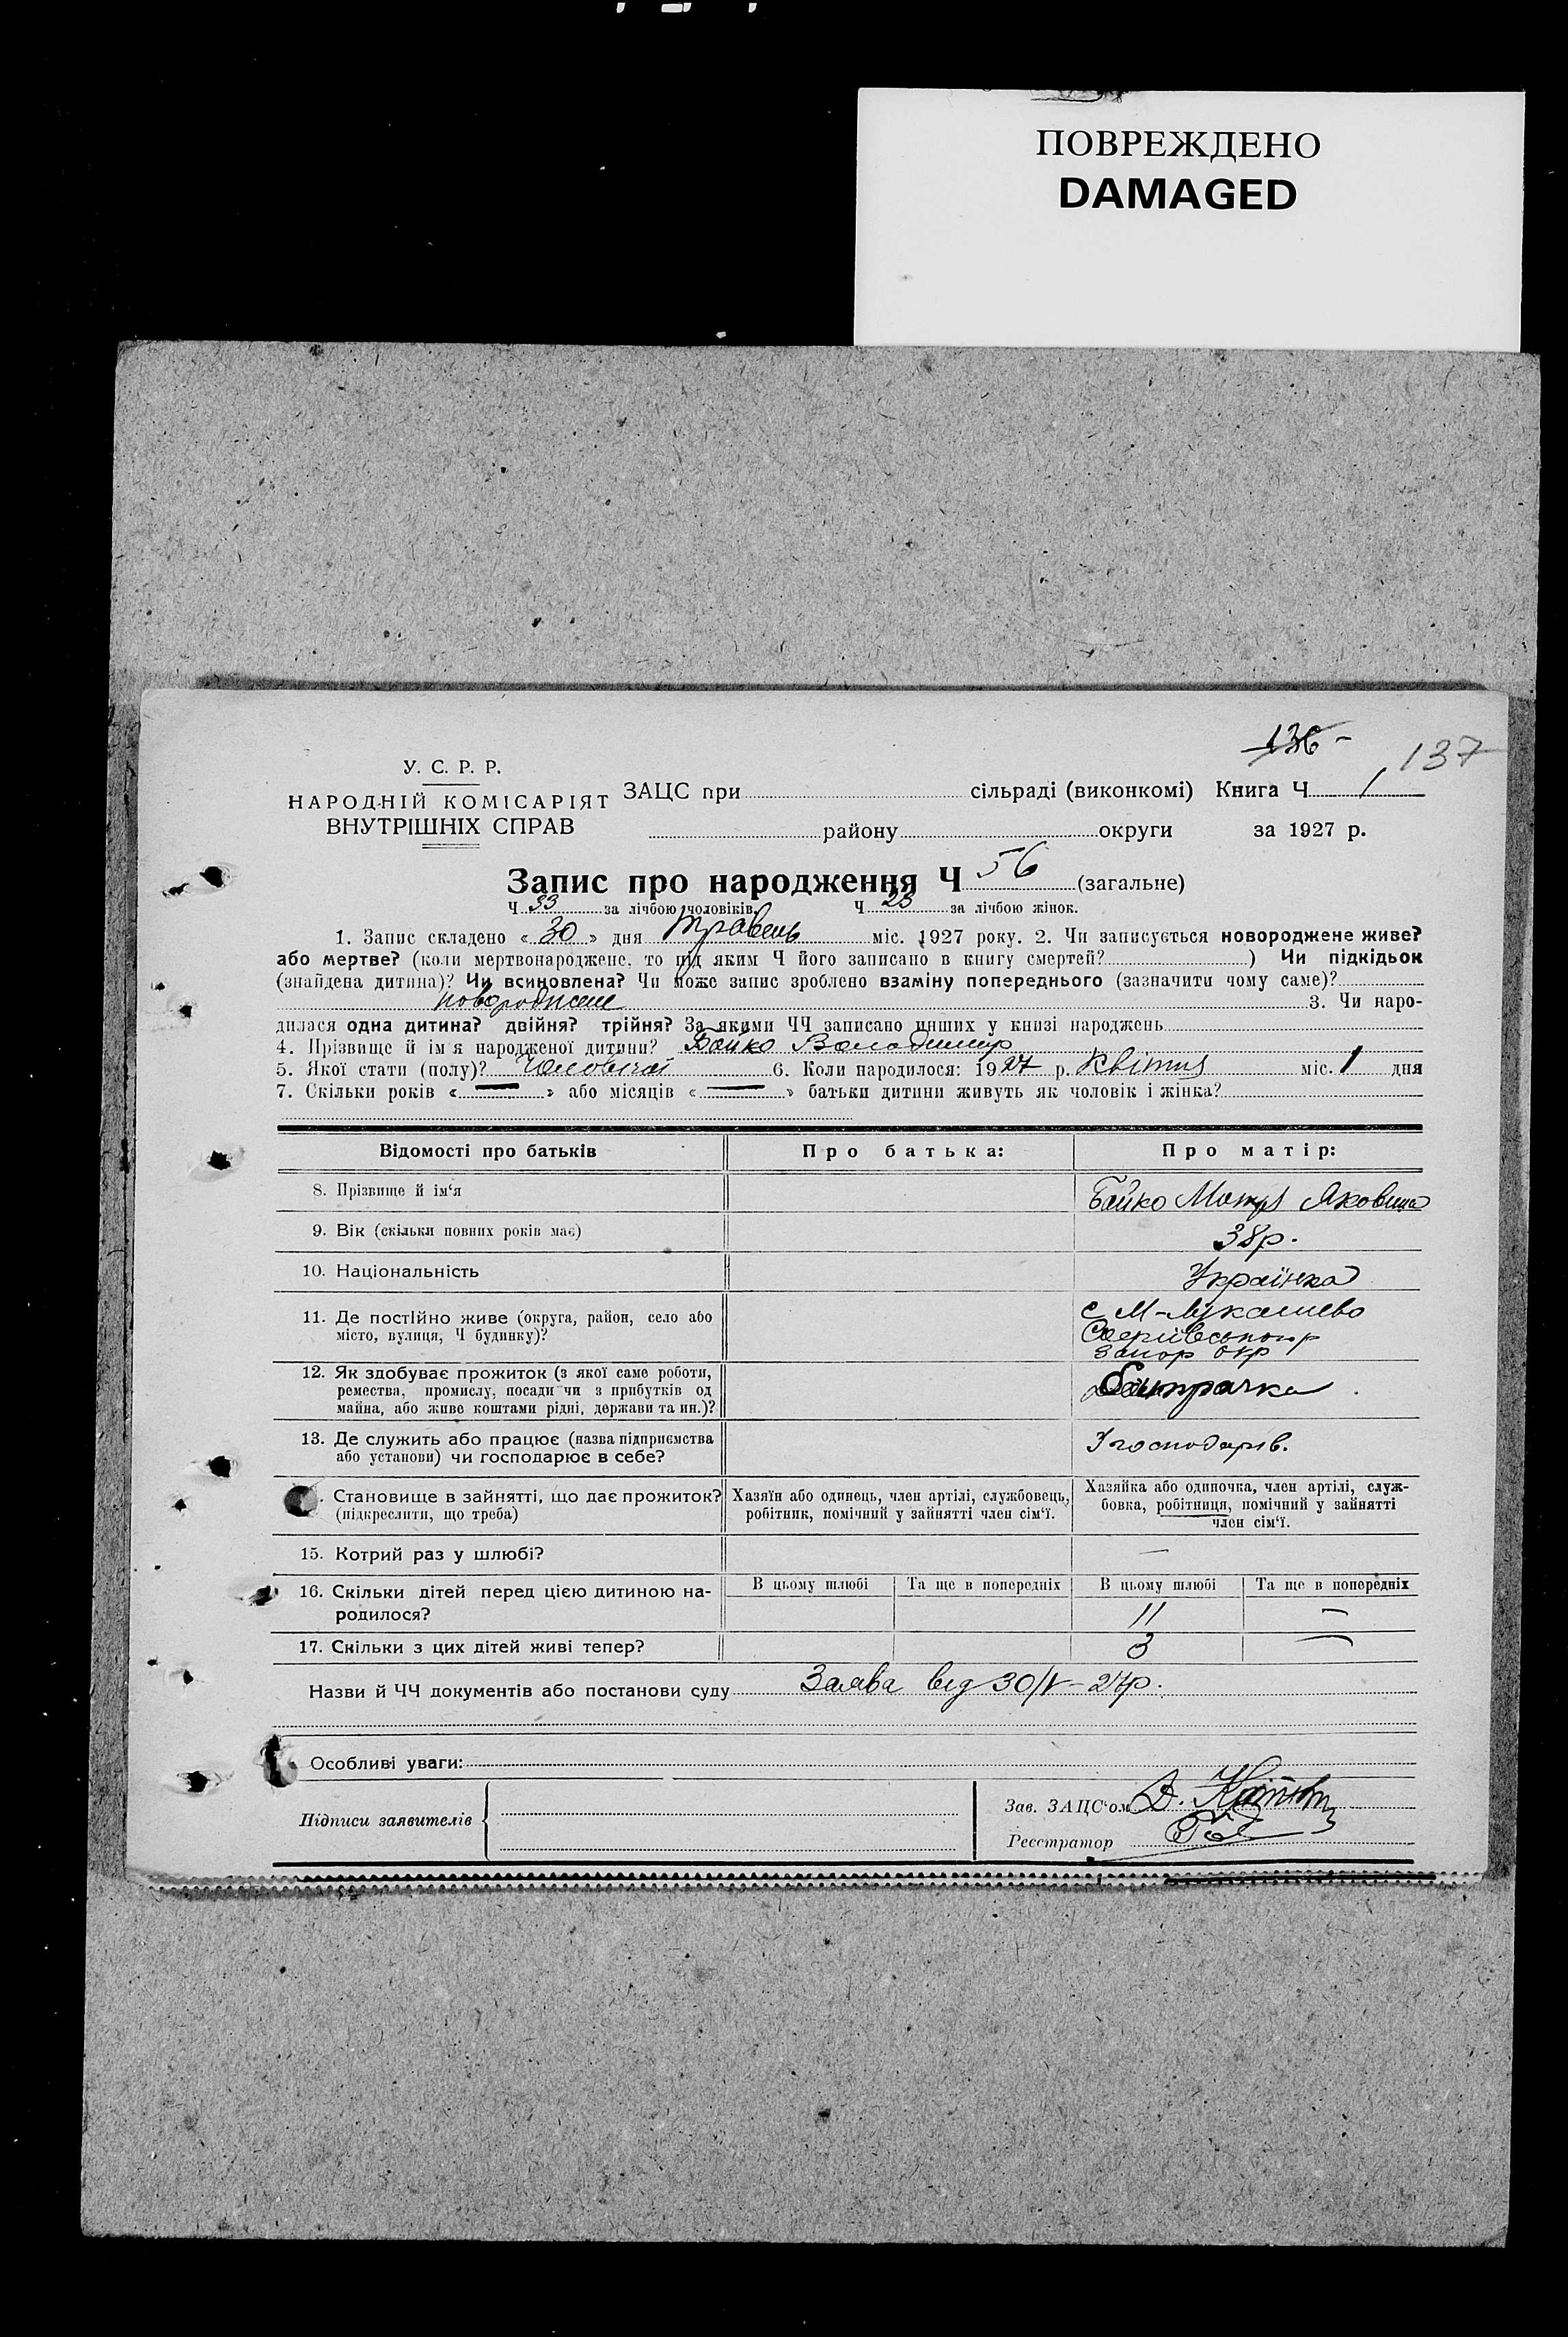 ПОВРЕЖДЕНО
DAMAGED
136 -
137
У. С. Р. Р.
НАРОДНІЙ КОМІСАРІЯТ
ВНУТРІШНІХ СПРАВ
ЗАЦС при сільраді (виконкомі) Книга Ч 1
району округи за 1927 р.
Запис про народження Ч 56 (загальне)
Ч 33 за лічбою чоловіків, Ч 23 за лічбою жінок.
1. Запис складено « 30 » дня Травень міс. 1927 року. 2. Чи записується новороджене живе?
або мертве? (коли мертвонароджене, то під яким Ч його записано в книгу смертей? ) Чи підкідьок
(знайдена дитина)? Чи всиновлена? Чи може запис зроблено взаміну попереднього (зазначити чому саме)?
новороднене 3. Чи наро-
дилася одна дитина? двійня? трійня? За якими ЧЧ записано инших у книзі народжень
4. Прізвище й ім'я народженої дитини? Бойко Володимир
5. Якої стати (полу)? Чоловічої 6. Коли народилося: 1927 р. Квітня міс. 1 дня
7. Скільки років « — » або місяців « — » батьки дитини живуть як чоловік і жінка?
Відомості про батьків Про батька: Про матір:
8. Прізвище й ім'я Бойко Мотря Яковина
9. Вік (скільки повних років має) 38 р.
10. Національність Українка
11. Де постійно живе (округа, район, село або
місто, вулиця, Ч будинку)?
с М-Лукашево
Запор окр
12. Як здобуває прожиток (з якої саме роботи,
ремества, промислу, посади чи з прибутків од
майна, або живе коштами рідні, держави та ин.)?
Батрачка
13. Де служить або працює (назва підприємства
або установи) чи господарює в себе?
У господарів.
Становище в зайнятті, що дає прожиток?
(підкреслити, що треба)
Хазяїн або одинець, член артілі, службовець,
робітник, помічний у зайнятті член сім'ї.
Хазяйка або одиночка, член артілі, служ-
бовка, робітниця, помічний у зайнятті
член сім'ї.
15. Котрий раз у шлюбі? —
16. Скільки дітей перед цією дитиною на-
родилося?
В цьому шлюбі Та ще в попередніх В цьому шлюбі Та ще в попередніх
11 —
17. Скільки з цих дітей живі тепер? 3 —
Назви й ЧЧ документів або постанови суду Заява від 30/V - 27р.
Особливі уваги:
Підписи заявителів
Зав. ЗАЦС'ом
Реєстратор